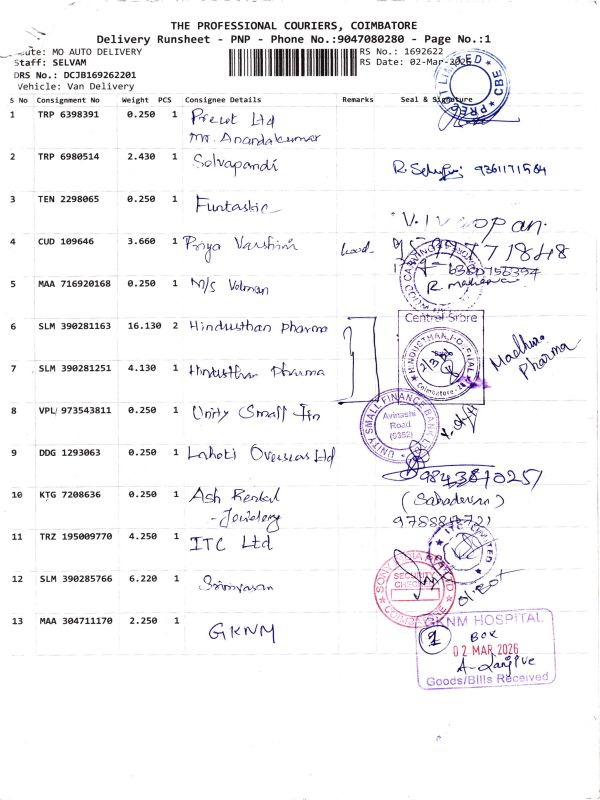 THE PROFESSIONAL COURIERS, COIMBATORE
Delivery Runsheet - PNP - Phone No.:9047080280 - Page No.:1
Route: MO AUTO DELIVERY RS No.: 1692622
Staff: SELVAM RS Date: 02-Mar-2026
DRS No.: DCJB169262201
Vehicle: Van Delivery
S No Consignment No Weight PCS Consignee Details Remarks Seal & Signature
PRECOT LIMITED CBE
1 TRP 6398391 0.250 1 Precot Ltd
Mr. Anandakumar
2 TRP 6980514 2.430 1 Selvapandi 9361171564
3 TEN 2298065 0.250 1 Funtastic
4 CUD 109646 3.660 1 Priya Varshini
5 MAA 716920168 0.250 1 M/s Velman
6 SLM 390281163 16.130 2 Hindusthan Pharma
Central Store
HINDUSTHAN HOSPITAL
Coimbatore
7 SLM 390281251 4.130 1 Hindusthan Pharma Madhura Pharma
8 VPL/ 973543811 0.250 1 Unity Small Fin
UNITY SMALL FINANCE BANK
Avinashi
Road
(9352)
9 DDG 1293063 0.250 1 Lahoti Overseas Ltd
10 KTG 7208636 0.250 1 Ash Rental
- Jewelery
(Sahadevan)
11 TRZ 195009770 4.250 1 ITC Ltd
ITC LIMITED
12 SLM 390285766 6.220 1 Srinivasan
SECURITY
CHECK
COIMBATORE
01. Box
13 MAA 304711170 2.250 1 GKNM
GKNM HOSPITAL
1 Box
02 MAR 2026
Goods/Bills Received